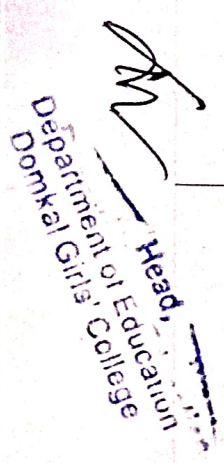 Head,
Department of Education
Domkal Girls' College